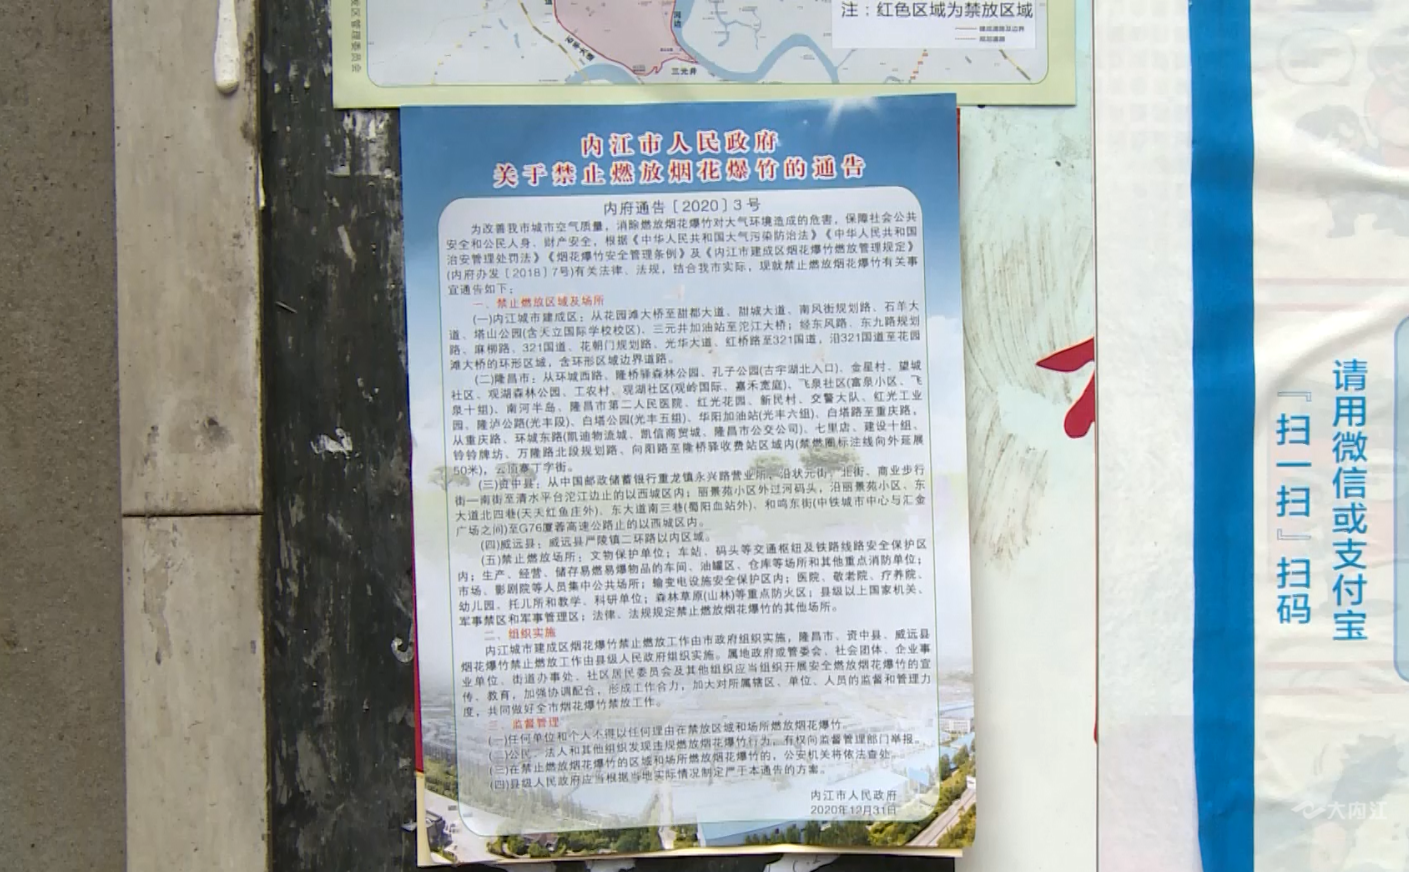 注：红色区域为禁放区域
三元井
内江市人民政府
关于禁止燃放烟花爆竹的通告
内府通告〔2020〕3号
为改善我市城市空气质量，消除燃放烟花爆竹对大气环境造成的危害，保障社会公共
安全和公民人身、财产安全，根据《中华人民共和国大气污染防治法》《中华人民共和国
治安管理处罚法》《烟花爆竹安全管理条例》及《内江市建成区烟花爆竹燃放管理规定》
(内府办发〔2018〕7号)有关法律、法规，结合我市实际，现就禁止燃放烟花爆竹有关事
宜通告如下：
一、禁止燃放区域及场所
(一)内江城市建成区：从花园滩大桥至甜都大道、甜城大道、南风街规划路、石羊大
道、塔山公园(含天立国际学校校区)、三元井加油站至沱江大桥；经东风路、东九路规划
路、麻柳路、321国道、花朝门规划路、光华大道、红桥路至321国道，沿321国道至花园
滩大桥的环形区域，含环形区域边界道路。
(二)隆昌市：从环城西路、隆桥驿森林公园、孔子公园(古宇湖北入口)、金星村、望城
社区、观湖森林公园、工农村、观湖社区(观岭国际、嘉禾宽庭)、飞泉社区(富泉小区、飞
泉十组)、南河半岛、隆昌市第二人民医院、红光花园、新民村、交警大队、红光工业
园、隆泸公路(光丰段)、白塔公园(光丰五组)、华阳加油站(光丰六组)、白塔路至重庆路。
从重庆路、环城东路(凯迪物流城、凯信商贸城、隆昌市公交公司)、七里店、建设十组、
铃铃牌坊、万隆路北段规划路、向阳路至隆桥驿收费站区域内(禁燃圈标注线向外延展
50米)，云顶寨丁字街。
(三)资中县：从中国邮政储蓄银行重龙镇永兴路营业所，沿状元街、北街、商业步行
街—南街至清水平台沱江边止的以西城区内；丽景苑小区外过河码头，沿丽景苑小区、东
大道北四巷(天天红鱼庄外)、东大道南三巷(蜀阳血站外)、和鸣东街(中铁城市中心与汇金
广场之间)至G76厦蓉高速公路止的以西城区内。
(四)威远县：威远县严陵镇二环路以内区域。
(五)禁止燃放场所：文物保护单位；车站、码头等交通枢纽及铁路线路安全保护区
内；生产、经营、储存易燃易爆物品的车间、油罐区、仓库等场所和其他重点消防单位；
市场、影剧院等人员集中公共场所；输变电设施安全保护区内；医院、敬老院、疗养院、
幼儿园、托儿所和教学、科研单位；森林草原(山林)等重点防火区；县级以上国家机关、
军事禁区和军事管理区；法律、法规规定禁止燃放烟花爆竹的其他场所。
二、组织实施
内江城市建成区烟花爆竹禁止燃放工作由市政府组织实施，隆昌市、资中县、威远县
烟花爆竹禁止燃放工作由县级人民政府组织实施。属地政府或管委会、社会团体、企业事
业单位、街道办事处、社区居民委员会及其他组织应当组织开展安全燃放烟花爆竹的宣
传、教育，加强协调配合，形成工作合力，加大对所属辖区、单位、人员的监督和管理力
度，共同做好全市烟花爆竹禁放工作。
三、监督管理
(一)任何单位和个人不得以任何理由在禁放区域和场所燃放烟花爆竹。
(二)公民、法人和其他组织发现违规燃放烟花爆竹行为，有权向监督管理部门举报。
(三)在禁止燃放烟花爆竹的区域和场所燃放烟花爆竹的，公安机关将依法查处。
(四)县级人民政府应当根据当地实际情况制定严于本通告的方案。
内江市人民政府
2020年12月31日
请用微信或支付宝
『扫一扫』扫码
大内江